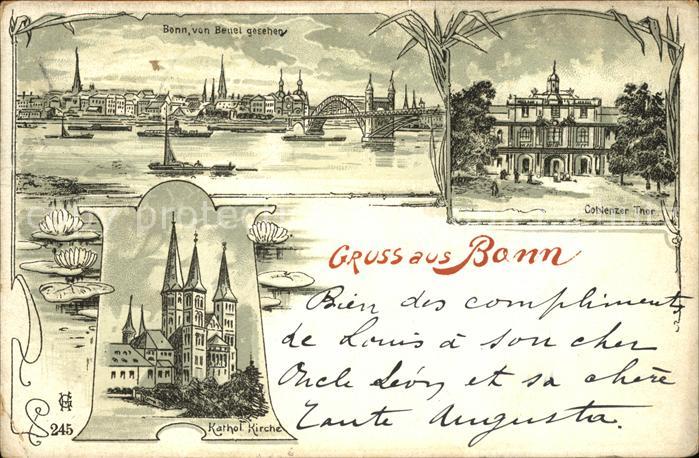 Bonn, von Beuel gesehen
Coblenzer Thor
Gruss aus Bonn
Bien des compliments
de Louis à son cher
Oncle Léon et sa chère
Tante Augusta.
Kathol. Kirche
245